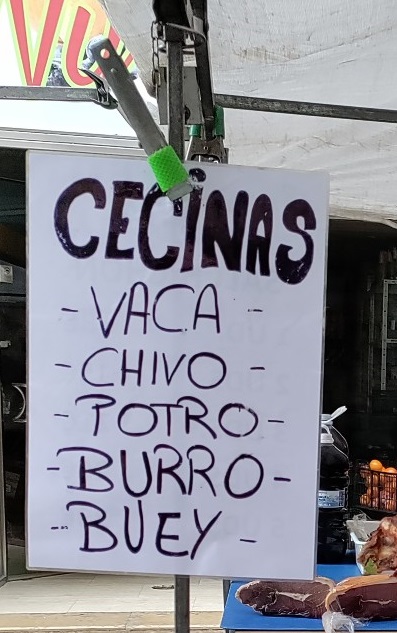 CECINAS
- VACA -
- CHIVO -
- POTRO -
- BURRO -
- BUEY -